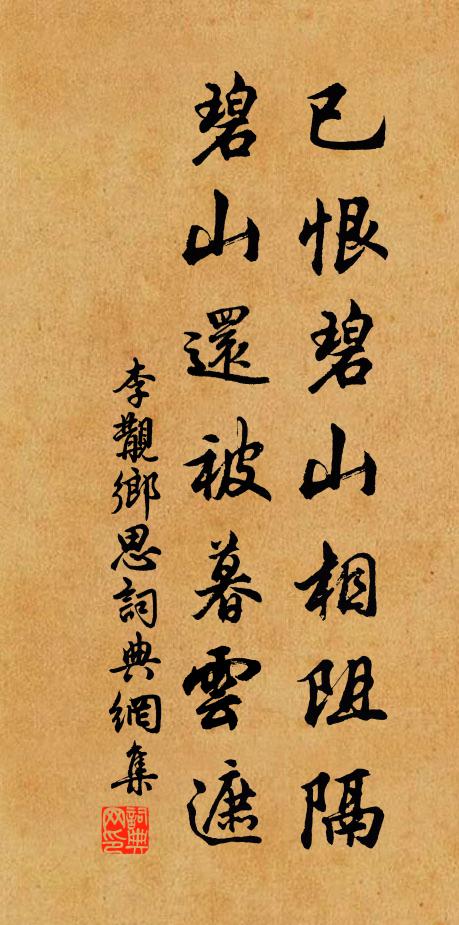 已恨碧山相阻隔
碧山還被暮雲遮
李覯鄉思詞典網集
詞典网印